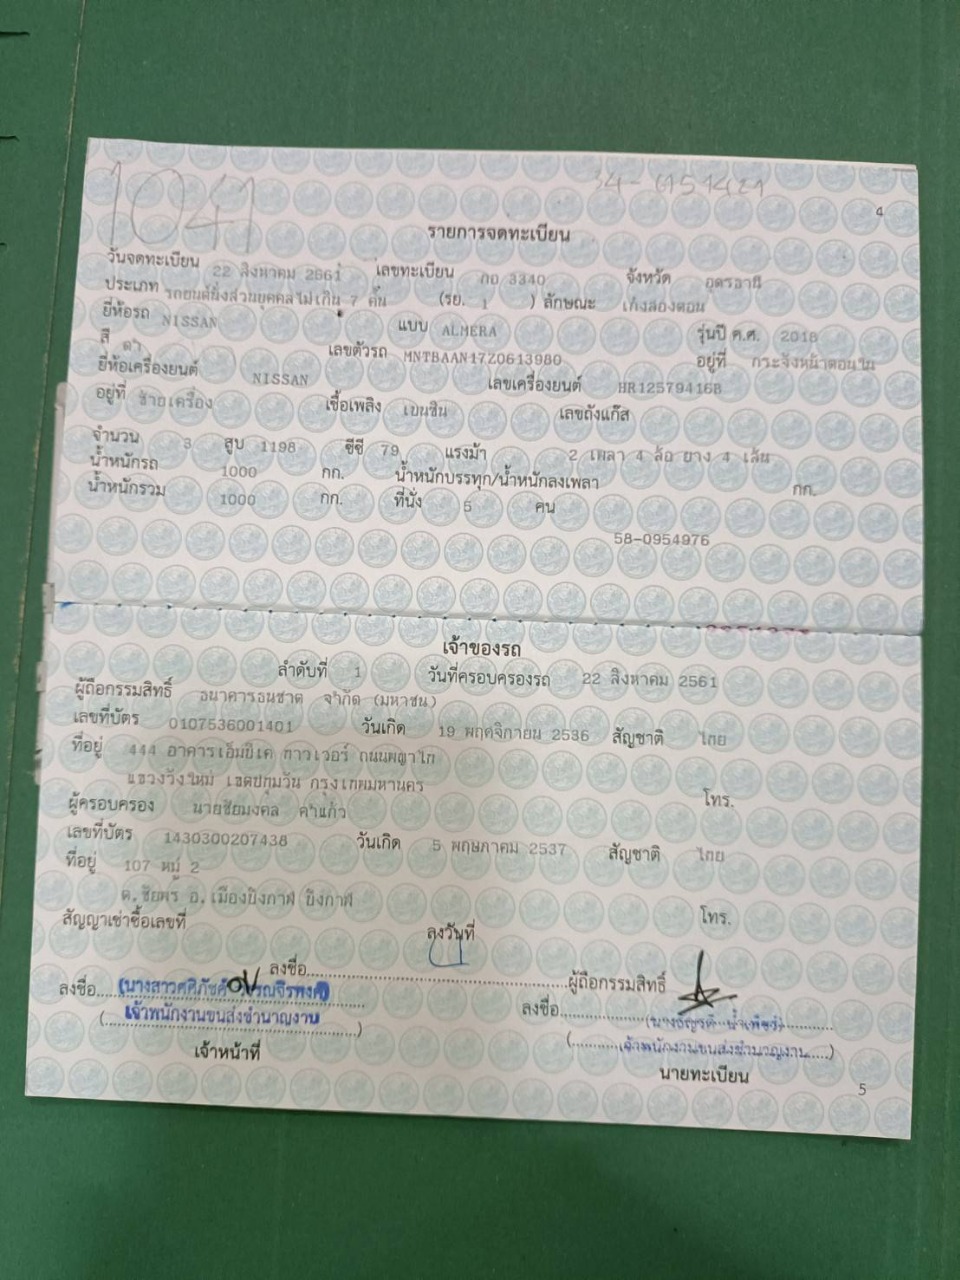 1041
4
รายการจดทะเบียน
วันจดทะเบียน 22 สิงหาคม 2561 เลขทะเบียน กอ 3340 จังหวัด อุดรธานี
ประเภท รถยนต์นั่งส่วนบุคคลไม่เกิน 7 คน (รย. 1 ) ลักษณะ เก๋งสองตอน
ยี่ห้อรถ NISSAN แบบ ALMERA รุ่นปี ค.ศ. 2018
สี ดำ เลขตัวรถ MNTBAAN17Z0613980 อยู่ที่ กระจังหน้าตอนใน
ยี่ห้อเครื่องยนต์ NISSAN เลขเครื่องยนต์ HR12579416B
อยู่ที่ ซ้ายเครื่อง เชื้อเพลิง เบนซิน เลขถังแก๊ส
จำนวน 3 สูบ 1198 ซีซี 79 แรงม้า 2 เพลา 4 ล้อ ยาง 4 เส้น
น้ำหนักรถ 1000 กก. น้ำหนักบรรทุก/น้ำหนักลงเพลา กก.
น้ำหนักรวม 1000 กก. ที่นั่ง 5 คน
58-0954976
เจ้าของรถ
ลำดับที่ 1 วันที่ครอบครองรถ 22 สิงหาคม 2561
ผู้ถือกรรมสิทธิ์ ธนาคารธนชาต จำกัด (มหาชน)
เลขที่บัตร 0107536001401 วันเกิด 19 พฤศจิกายน 2536 สัญชาติ ไทย
ที่อยู่ 444 อาคารเอ็มบีเค ทาวเวอร์ ถนนพญาไท
แขวงวังใหม่ เขตปทุมวัน กรุงเทพมหานคร โทร.
ผู้ครอบครอง นายชัยมงคล คำแก้ว
เลขที่บัตร 1430300207438 วันเกิด 5 พฤษภาคม 2537 สัญชาติ ไทย
ที่อยู่ 107 หมู่ 2
ต.ชัยพร อ.เมืองบึงกาฬ บึงกาฬ โทร.
สัญญาเช่าซื้อเลขที่ ลงวันที่
ลงชื่อ ผู้ถือกรรมสิทธิ์
ลงชื่อ ลงชื่อ
เจ้าพนักงานขนส่งชำนาญงาน เจ้าพนักงานขนส่งชำนาญงาน
เจ้าหน้าที่ นายทะเบียน
5